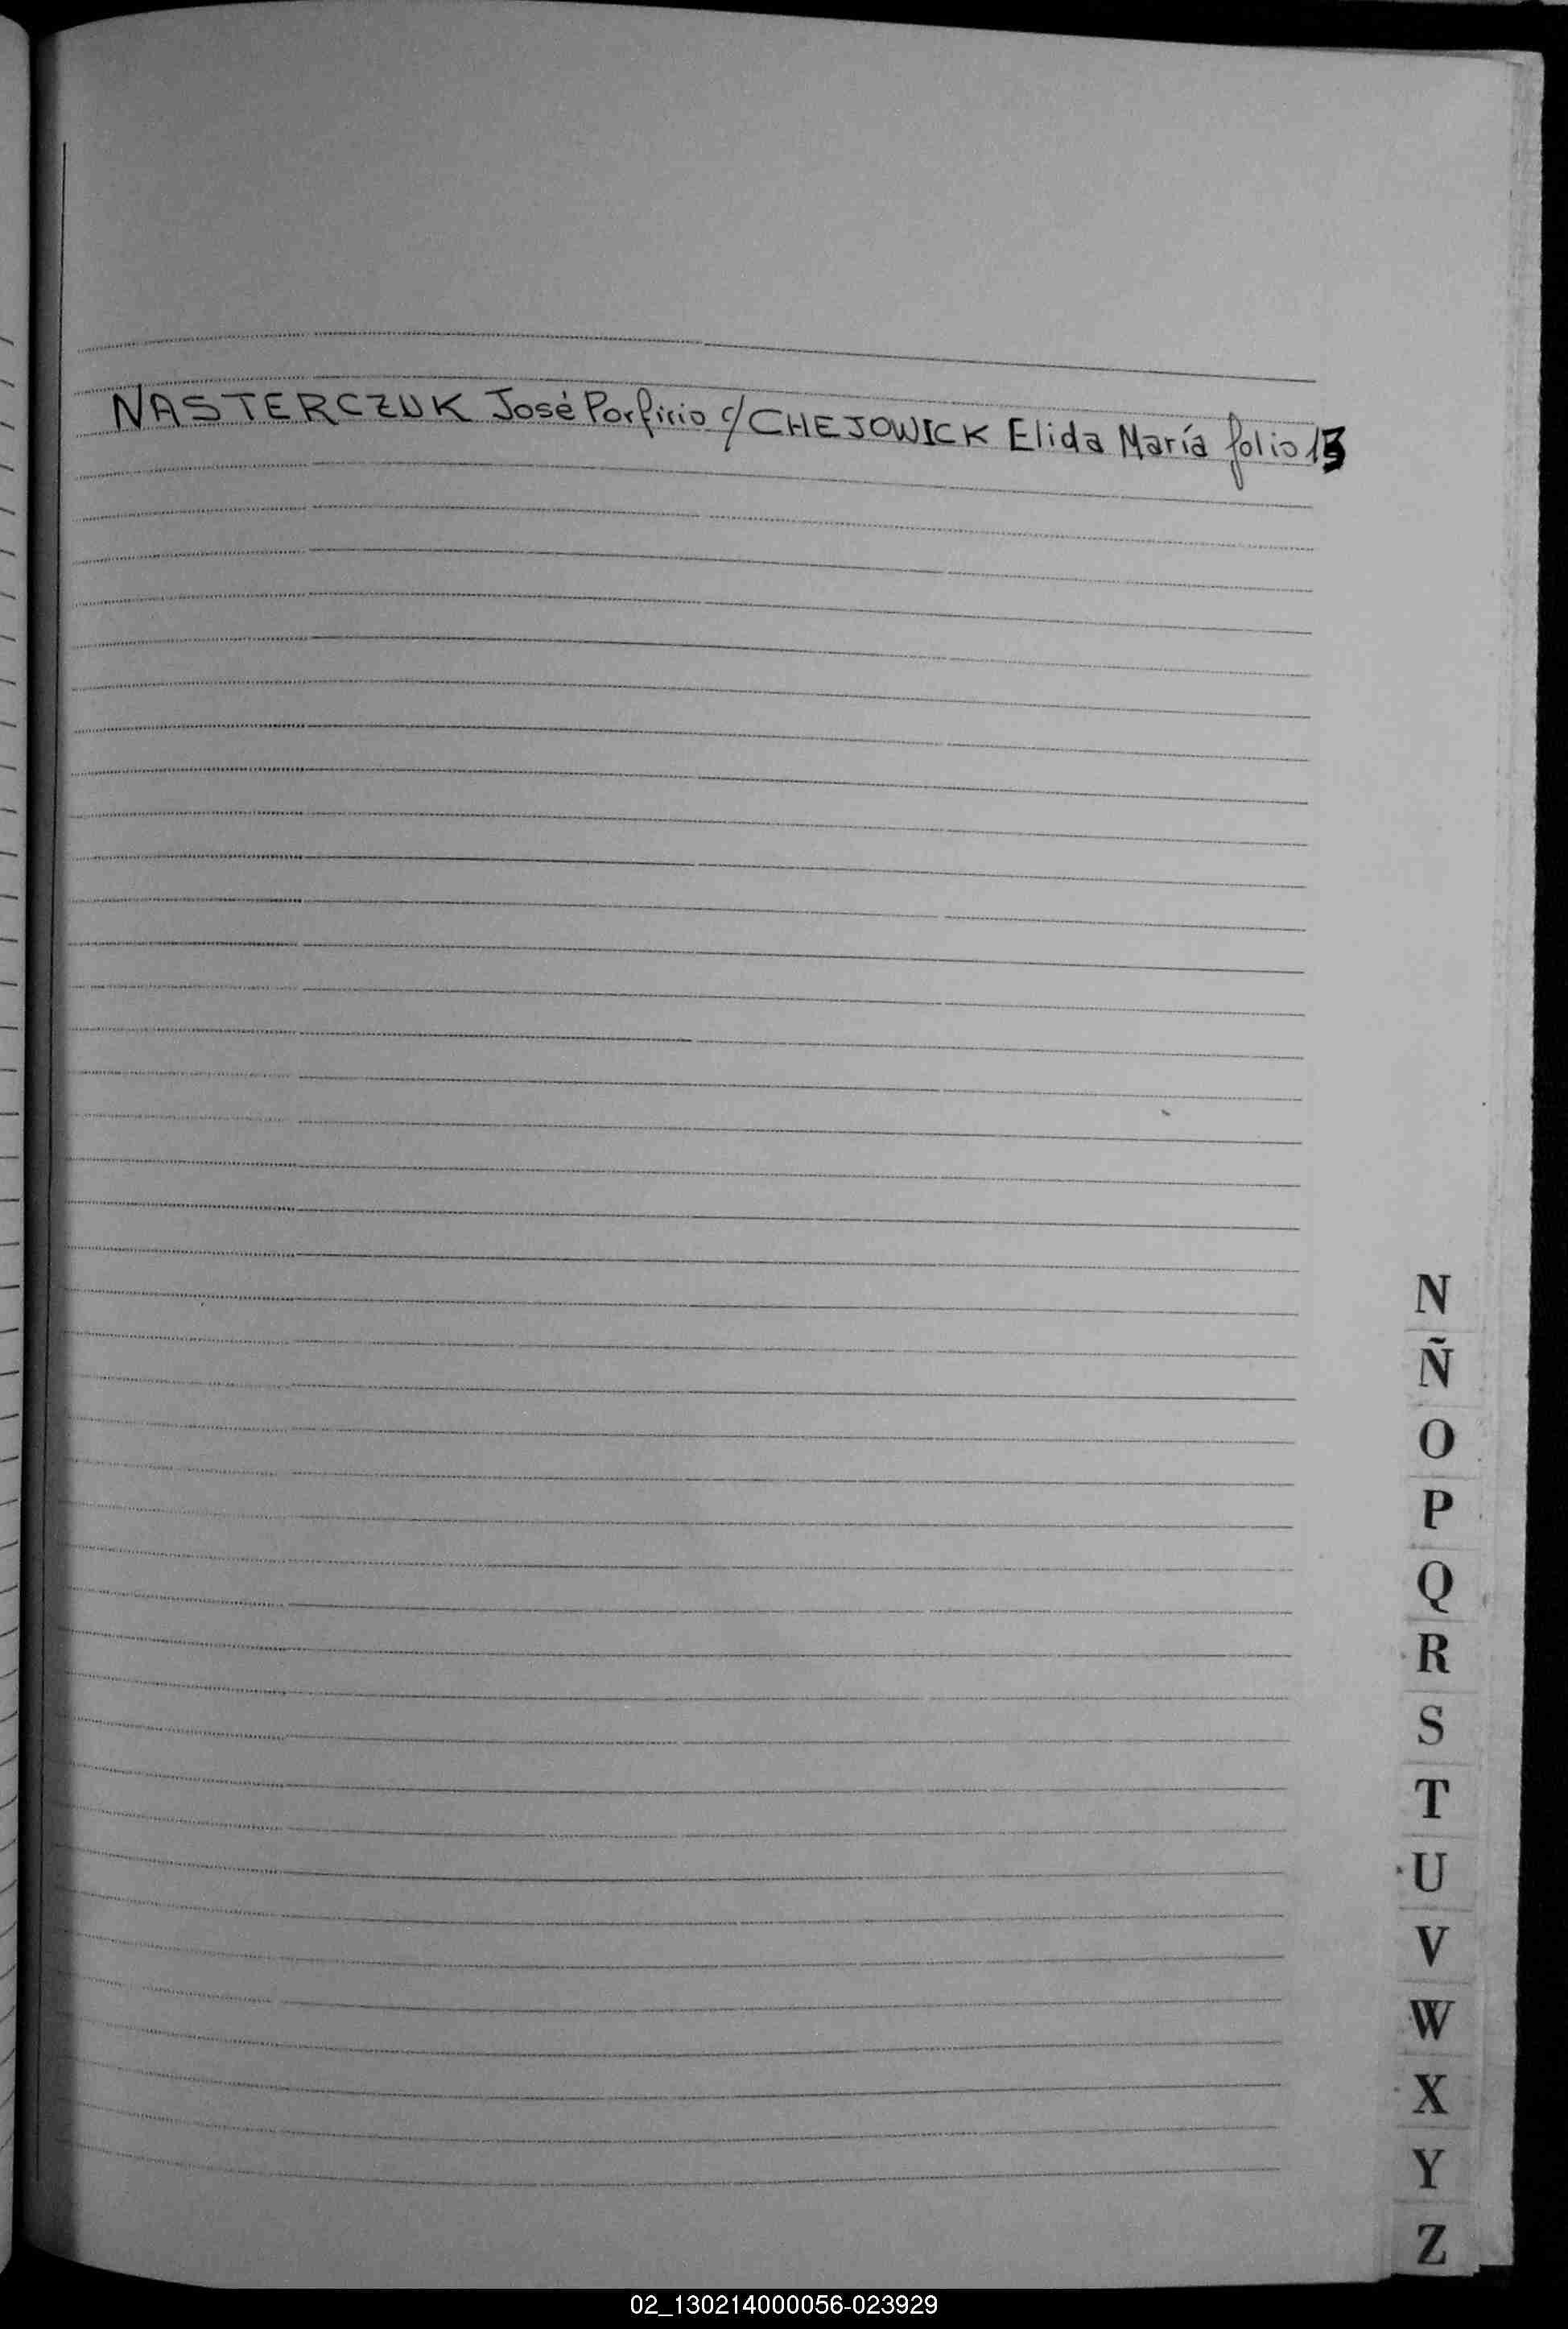 NASTERCZUK José Porfirio c/ CHEJOWICK Elida María folio 13
N
Ñ
O
P
Q
R
S
T
U
V
W
X
Y
Z
02_130214000056-023929